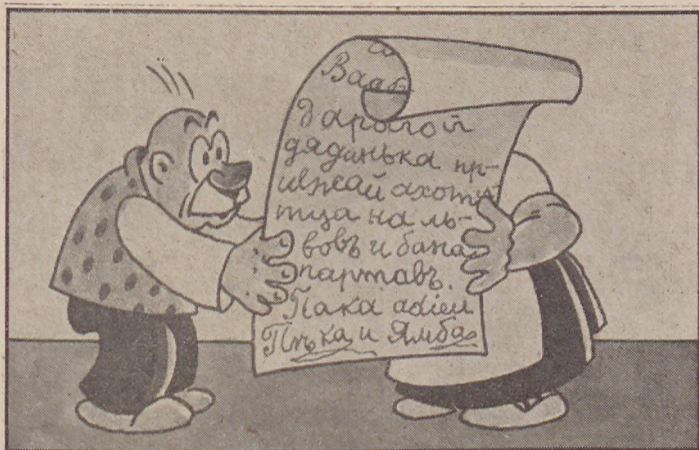 Дарагой
дядинька пр-
иѣжай ахоти
тца на ль-
вовъ и бана
партавъ.
Пака адіеи
Пѣка и Ямба